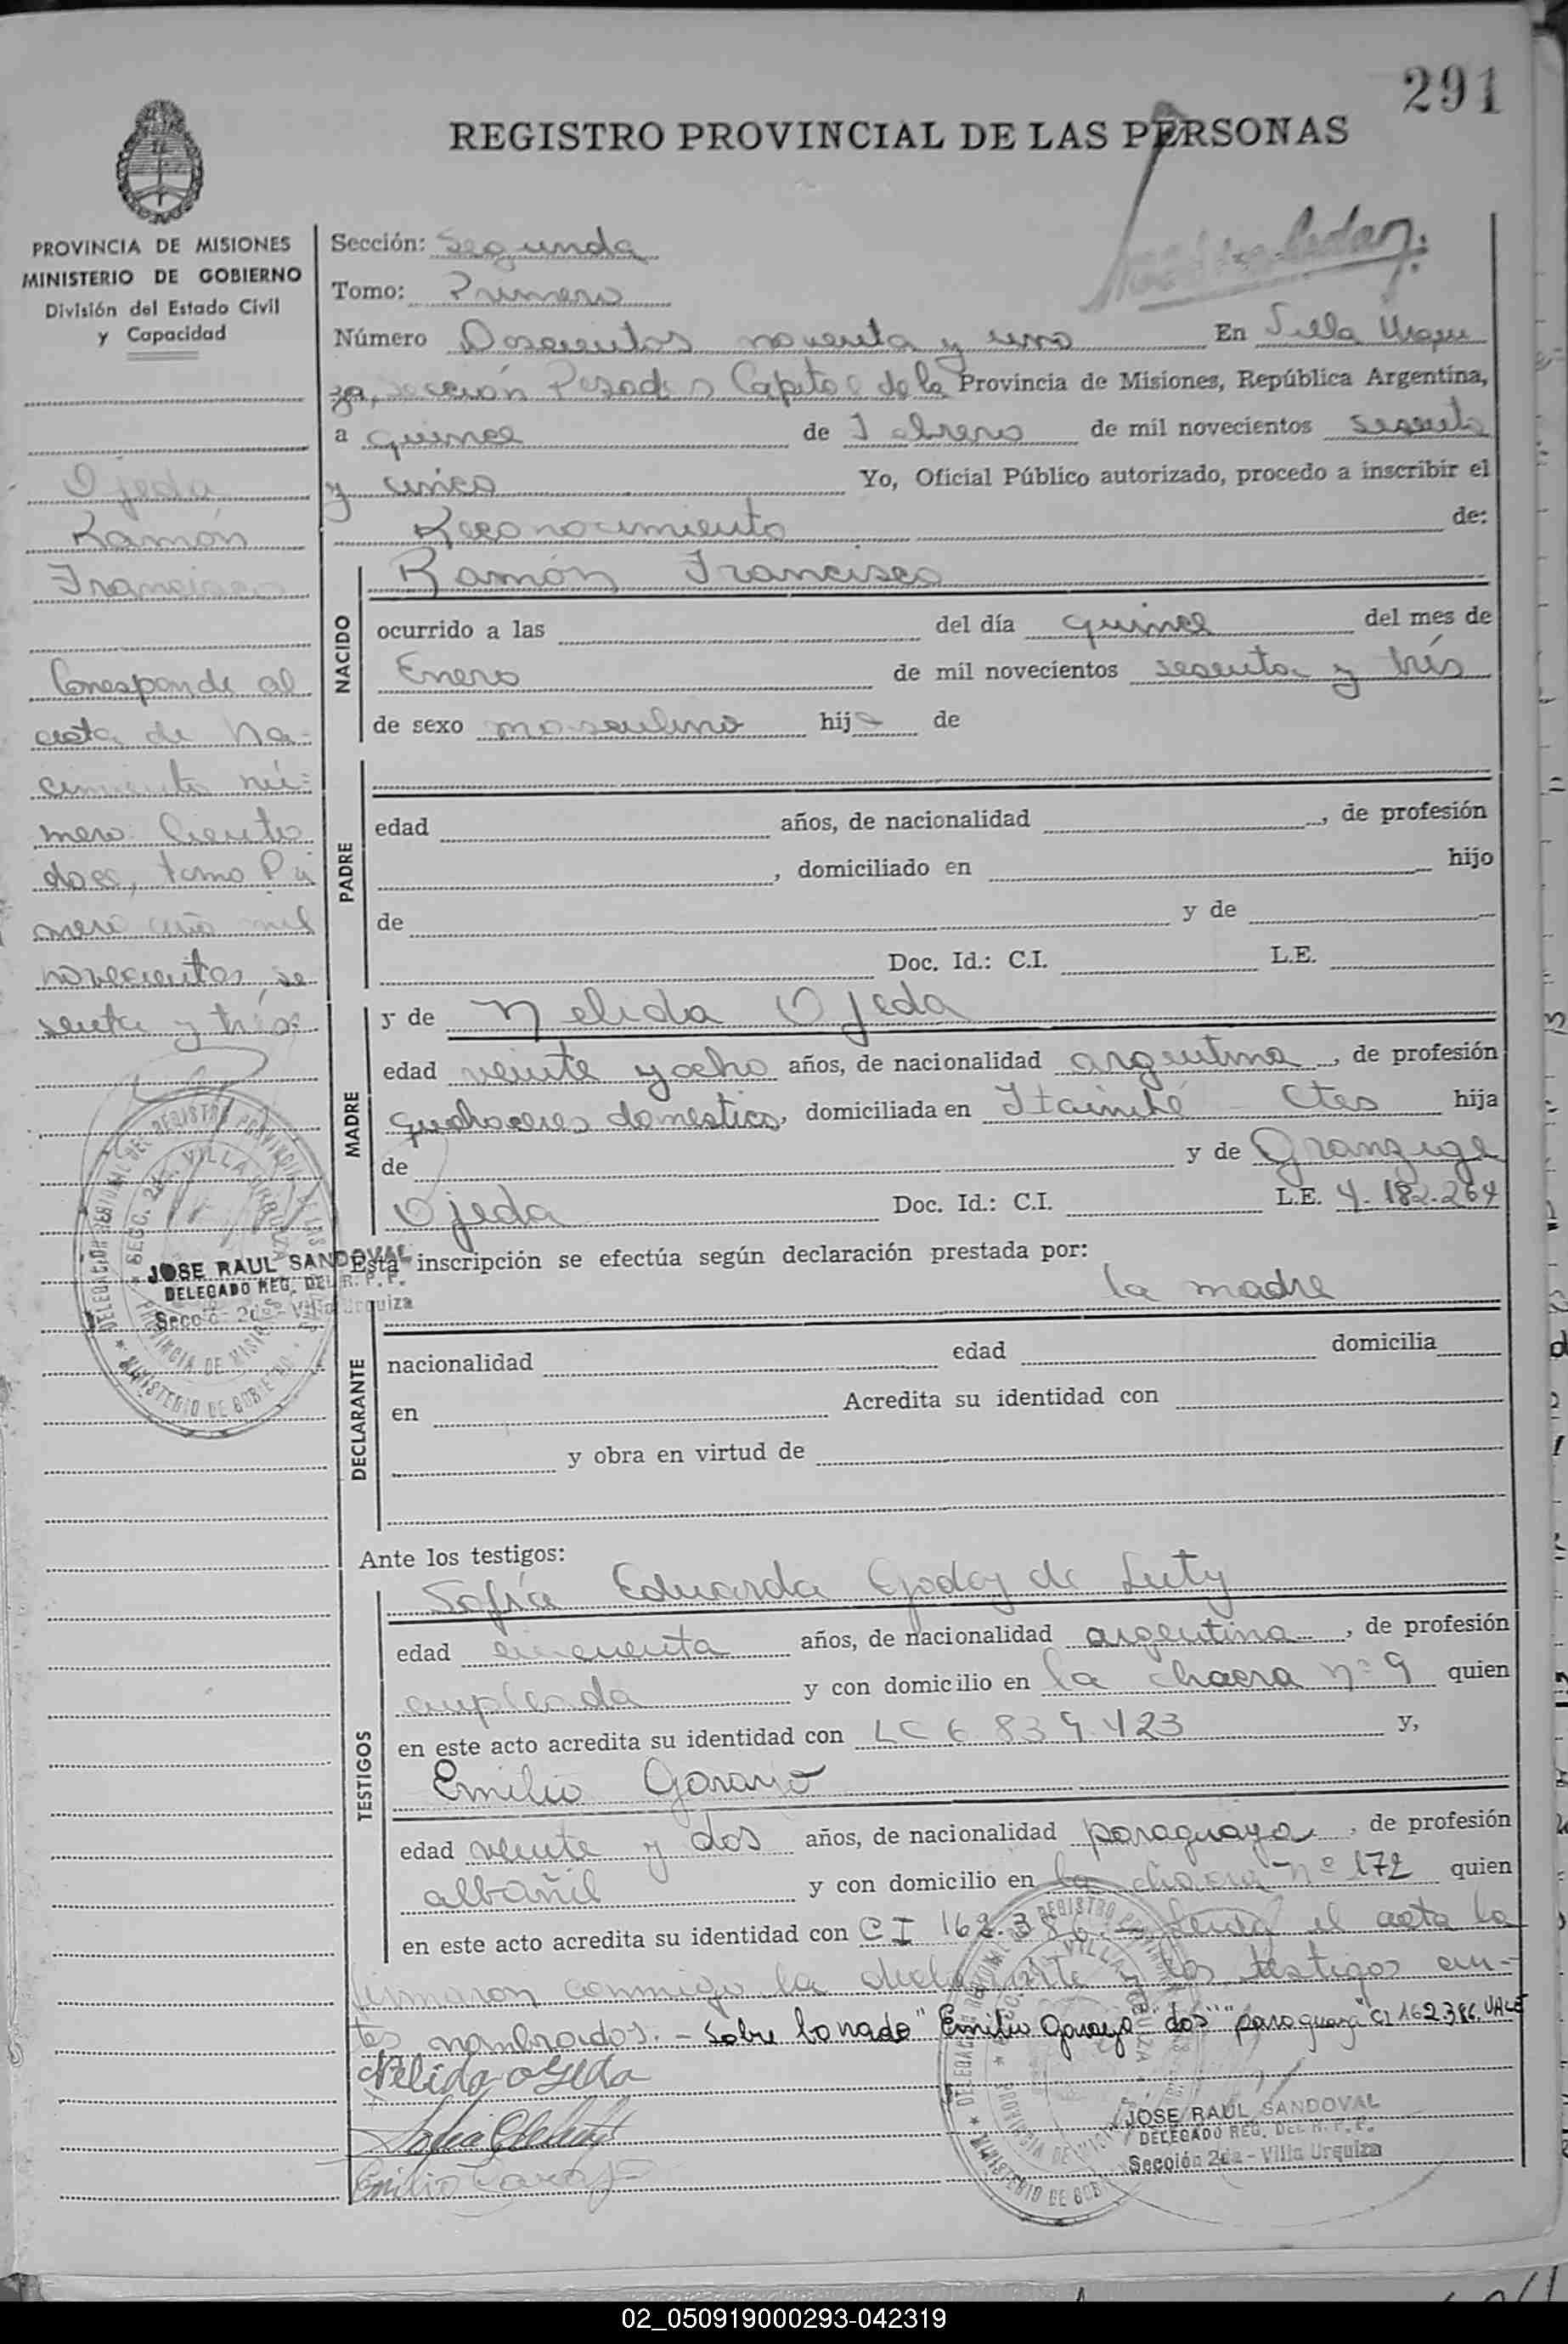 291
REGISTRO PROVINCIAL DE LAS PERSONAS
PROVINCIA DE MISIONES
MINISTERIO DE GOBIERNO
División del Estado Civil
y Capacidad
Ojeda
Ramón
Francisco
Corresponde al
acta de Na-
cimiento nú=
mero Ciento
doce, tomo Pri
mero año mil
novecientos se
senta y trés.
DELEGACION REGIONAL DEL REGISTRO PROVINCIAL DE LAS
SECC. 2da. VILLA URQUIZA
PROVINCIA DE MISIONES
MINISTERIO DE GOBIERNO
JOSE RAUL SANDOVAL
DELEGADO REG. DEL R. P. P.
Secció 2da - Villa Urquiza
Sección: Segunda
Tomo: Primero
Número Doscientos noventa y uno En Villa Urqui
za, sección Posadas Capital de la Provincia de Misiones, República Argentina,
a quince de Febrero de mil novecientos sesenta
y cinco Yo, Oficial Público autorizado, procedo a inscribir el
Reconocimiento de:
NACIDO
Ramón Francisco
ocurrido a las del día quince del mes de
Enero de mil novecientos sesenta y trés
de sexo masculino hijo de
PADRE
edad años, de nacionalidad , de profesión
, domiciliado en hijo
de y de
Doc. Id.: C.I. L.E.
MADRE
y de Nelida Ojeda
edad veinte y ocho años, de nacionalidad argentina, de profesión
quehaceres domestico, domiciliada en Itaimbé - Ctes hija
de y de
Ojeda Doc. Id.: C.I. L.E. 4.182.264
Esta inscripción se efectúa según declaración prestada por:
la madre
DECLARANTE
nacionalidad edad domicilia
en Acredita su identidad con
y obra en virtud de
Ante los testigos:
TESTIGOS
Sofía Eduarda Godoy de Luty
edad cincuenta años, de nacionalidad argentina, de profesión
empleada y con domicilio en la chacra nº 9 quien
en este acto acredita su identidad con LC 6.839.423 y,
Emilio Garayo
edad veinte y dos años, de nacionalidad paraguaya, de profesión
albañil y con domicilio en la chacra nº 172 quien
en este acto acredita su identidad con CI 162.386. el acta la
firmaron conmigo la declarante y los testigos an-
tes nombrados. - Sobre borrado "Emilio Garayo" "dos" "paraguaya" CI 162.386. VALE
Nélida ojeda
Emilio Garayo
DELEGACION REGIONAL DEL REGISTRO PROVINCIAL
SECC. 2da. VILLA URQUIZA
PROVINCIA DE MISIONES
MINISTERIO DE GOBIERNO
JOSE RAUL SANDOVAL
DELEGADO REG. DEL R. P. P.
Sección 2da - Villa Urquiza
02_050919000293-042319